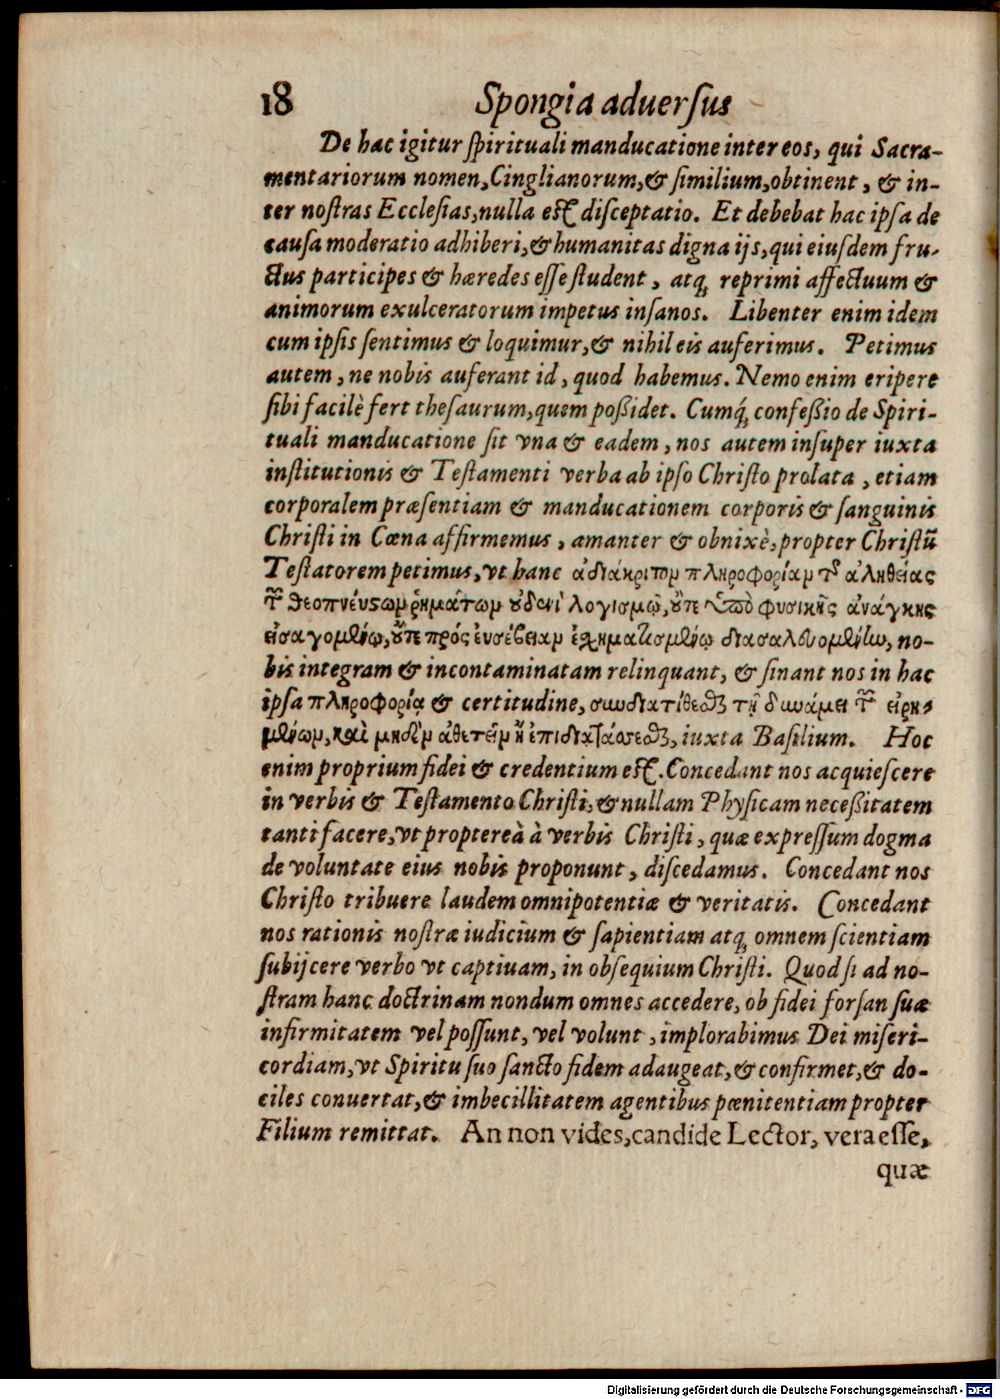 18 Spongia aduersus
De hac igitur spirituali manducatione inter eos, qui Sacra-
mentariorum nomen, Cinglianorum, & similium, obtinent, & in-
ter nostras Ecclesias, nulla est disceptatio. Et debebat hac ipsa de
causa moderatio adhiberi, & humanitas digna ijs, qui eiusdem fru-
ctus participes & hæredes esse student, atq; reprimi affectuum &
animorum exulceratorum impetus insanos. Libenter enim idem
cum ipsis sentimus & loquimur, & nihil eis auferimus. Petimus
autem, ne nobis auferant id, quod habemus. Nemo enim eripere
sibi facilè fert thesaurum, quem poßidet. Cumq́; confeßio de Spiri-
tuali manducatione sit vna & eadem, nos autem insuper iuxta
institutionis & Testamenti verba ab ipso Christo prolata, etiam
corporalem præsentiam & manducationem corporis & sanguinis
Christi in Cœna affirmemus, amanter & obnixè, propter Christū
Testatorem petimus, vt hanc ἀδιάκριτον πληροφορίαν τῆς ἀληθείας
τῶν θεοπνεύστων ῥημάτων οὐδενὶ λογισμῷ, οὔτε ὑπὸ φυσικῆς ἀνάγκης
εἰσαγομένῳ, οὔτε πρός ἐυσέβειαν ἐχηματισμένῳ διασαλευομένην, no-
bis integram & incontaminatam relinquant, & sinant nos in hac
ipsa πληροφορίᾳ & certitudine, συνδιατίθεσθαι τῇ δυνάμει τῶν εἰρη-
μένων, καὶ μηδὲν ἀθετεῖν ἢ ἐπιδιατάσσεσθαι, iuxta Basilium. Hoc
enim proprium fidei & credentium est. Concedant nos acquiescere
in verbis & Testamento Christi, & nullam Physicam neceßitatem
tanti facere, vt proptereà à verbis Christi, quæ expressum dogma
de voluntate eius nobis proponunt, discedamus. Concedant nos
Christo tribuere laudem omnipotentiæ & veritatis. Concedant
nos rationis nostræ iudicium & sapientiam atq; omnem scientiam
subijcere verbo vt captiuam, in obsequium Christi. Quod si ad no-
stram hanc doctrinam nondum omnes accedere, ob fidei forsan suæ
infirmitatem vel possunt, vel volunt, implorabimus Dei miseri-
cordiam, vt Spiritu suo sancto fidem adaugeat, & confirmet, & do-
ciles conuertat, & imbecillitatem agentibus pœnitentiam propter
Filium remittat. An non vides, candide Lector, vera esse,
quæ
Digitalisierung gefördert durch die Deutsche Forschungsgemeinschaft - DFG